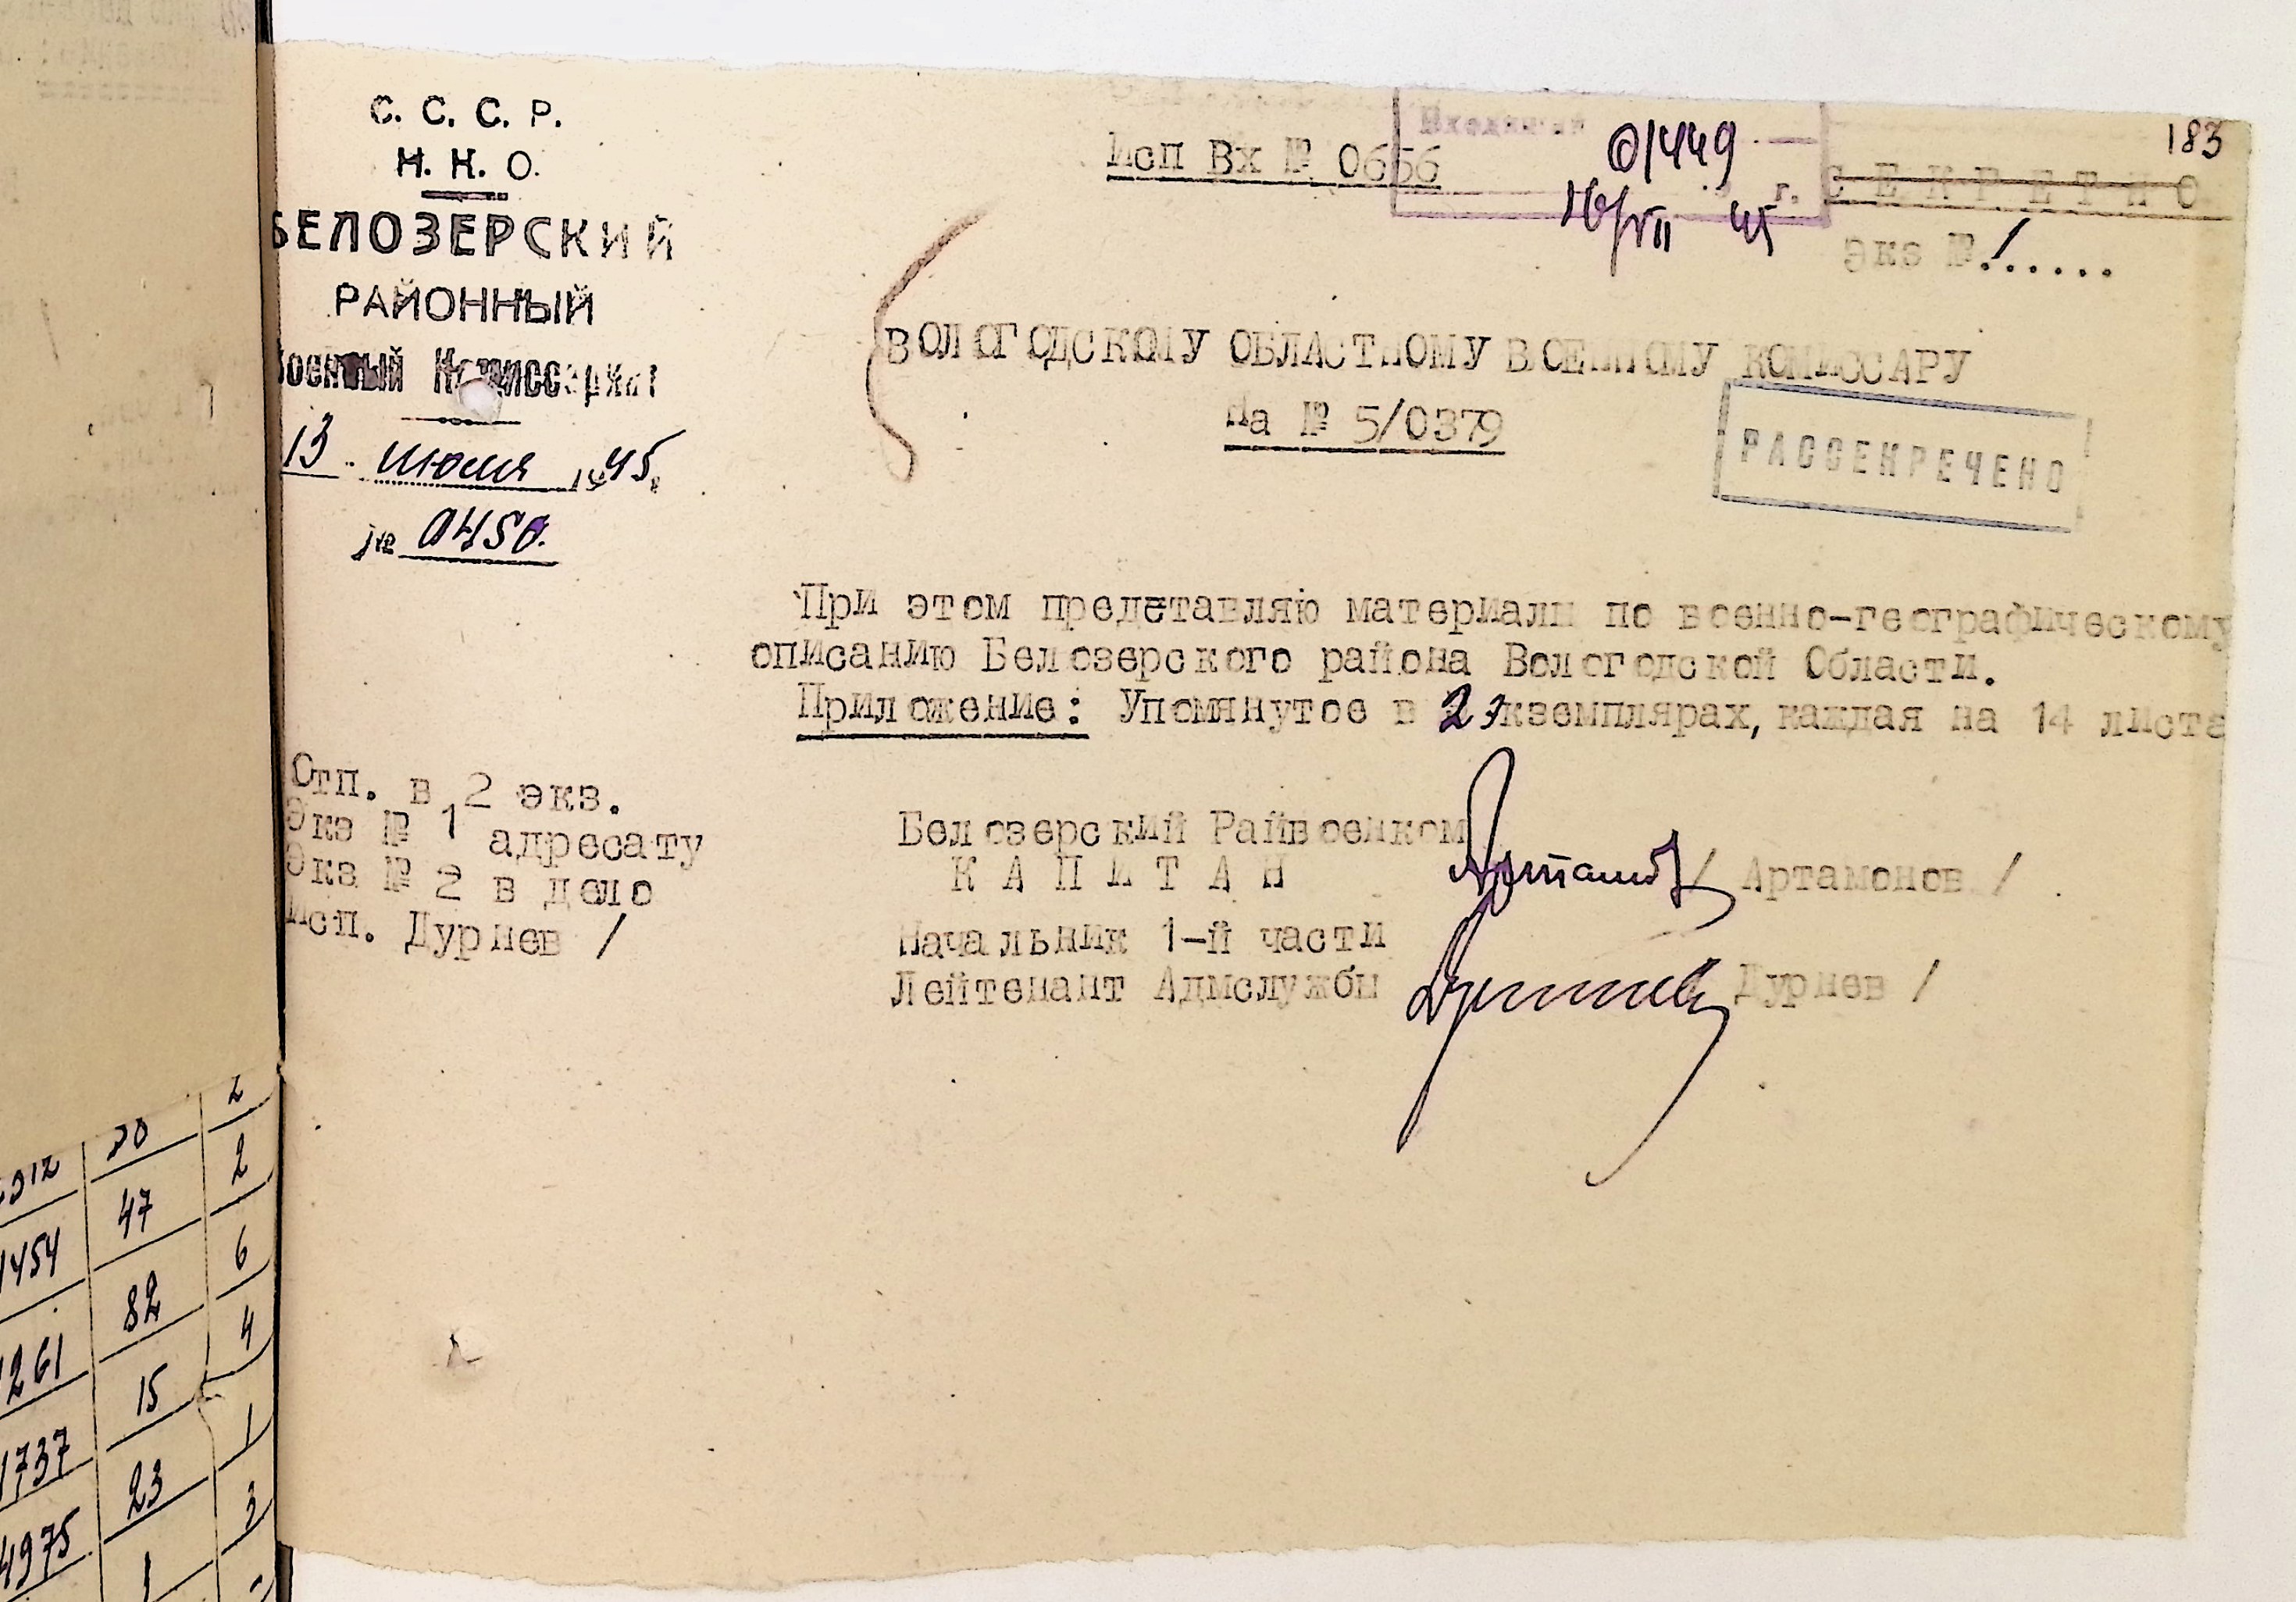 С. С. С. Р.
Н. К. О.
БЕЛОЗЕРСКИЙ
РАЙОННЫЙ
Военный Комиссариат
13 июля 1945г.
№ 0450.
Исп Вх № 0656
Входящий
01449
16/VII 45 г.
183
СЕКРЕТНО
экз № 1......
ВОЛОГОДСКОМУ ОБЛАСТНОМУ ВОЕННОМУ КОМИССАРУ
На № 5/0379
РАССЕКРЕЧЕНО
При этом представляю материалы по военно-географическому
описанию Белозерского района Вологодской Области.
Приложение: Упомянутое в 2 экземплярах, каждая на 14 листа
Отп. в 2 экз.
Экз № 1 адресату
Экз № 2 в дело
Исп. Дурнев /
Белозерский Райвоенком
КАПИТАН / Артамонов /
Начальник 1-й части
Лейтенант Админслужбы Дурнев /
20 2
1454 47 2
1261 82 6
1737 15 4
4975 23 1
1 3